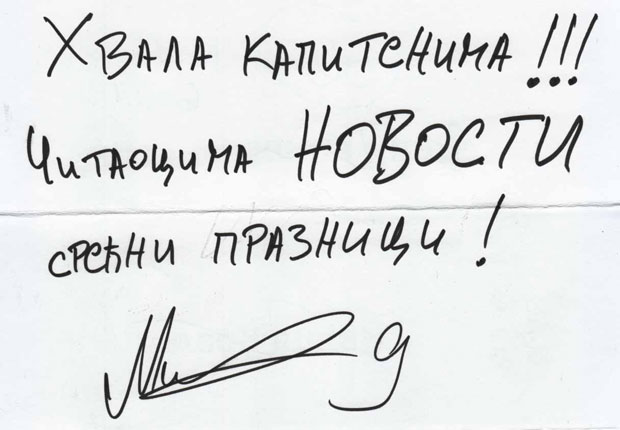 ХВАЛА КАПИТЕНИМА!!!
ЧИТАОЦИМА НОВОСТИ
СРЕЋНИ ПРАЗНИЦИ!
9